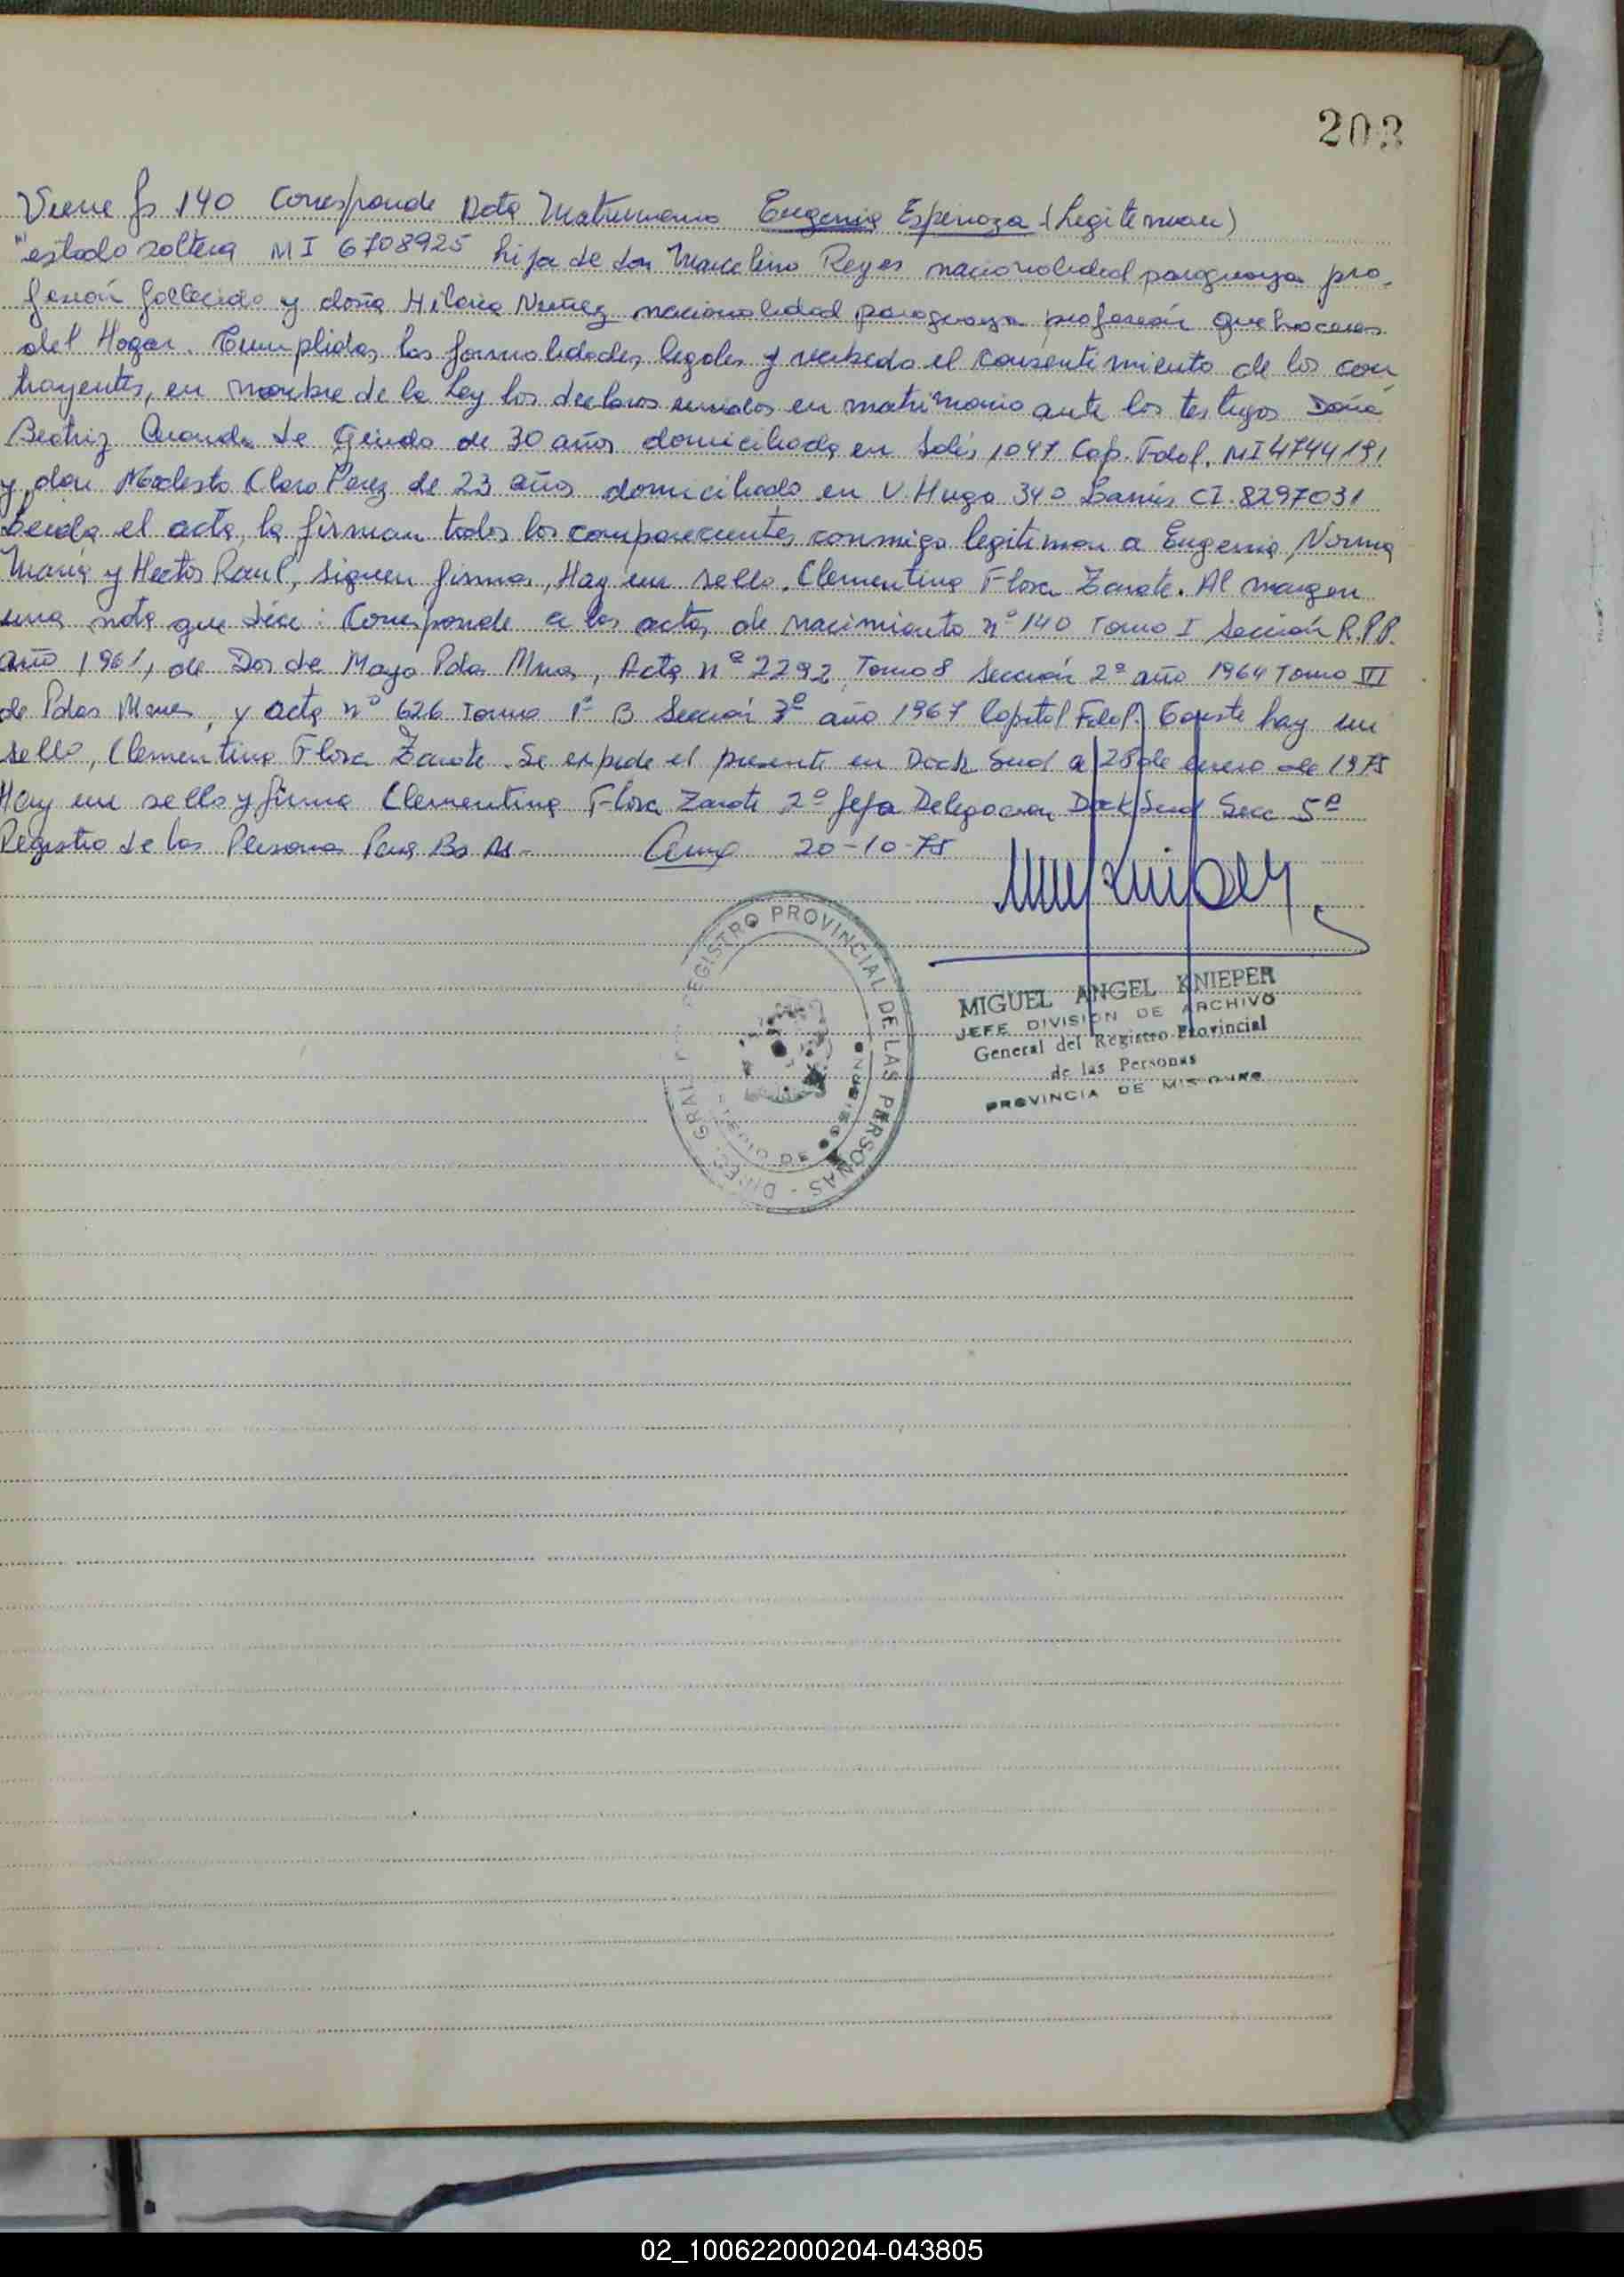 203
Viene fs 140 Corresponde Acta Matrimonio Eugenia Espinoza (Legitiman)
"estado soltera MI 6708925 hija de don Marcelino Reyes nacionalidad paraguaya pro-
fesión fallecido y doña Hilaria Nuñez nacionalidad paraguaya profesión quehaceres
del Hogar. Cumplidas las formalidades legales y recibido el consentimiento de los con
trayentes, en nombre de la Ley los declaro unidos en matrimonio ante los testigos Doña
Beatriz de de 30 años domiciliada en Solís 1047 Cap. Fdal. MI 4744191
y don Modesto Claro Perez de 23 años domiciliado en V. Hugo 340 Lanús CI. 8297031
Leida el acta, la firman todos los comparecientes conmigo legitiman a Eugenia, Norma
Maria y Hector Raul, siguen firmas, Hay un sello. Clementina Flora Zarate. Al margen
una nota que dice: Corresponde a las actas de nacimiento nº 140 Tomo I Sección R.P.P.
año 1961, de Dos de Mayo Pdas Mnes, Acta nº 2292 Tomo 8 Sección 2º año 1964 Tomo III
de Pdas Mnes, y acta nº 626 Tomo 1º B Sección 3º año 1967 Capital Fdal. Conste hay un
sello, Clementina Flora Zarate. Se expide el presente en Dock Sud a 28 de enero de 1975
Hay un sello y firma Clementina Flora Zarate 2º Jefa Delegacion Dock Sud Secc 5ª
Registro de las Personas Pcia Bs As - 20-10-75
REGISTRO PROVINCIAL DE LAS PERSONAS - DIREC. GRAL.
MIGUEL ANGEL KNIEPER
JEFE DIVISION DE ARCHIVO
General del Registro Provincial
de las Personas
PROVINCIA DE MISIONES
02_100622000204-043805